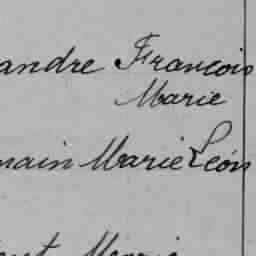 andre François
Marie
main Marie Léon
Marie